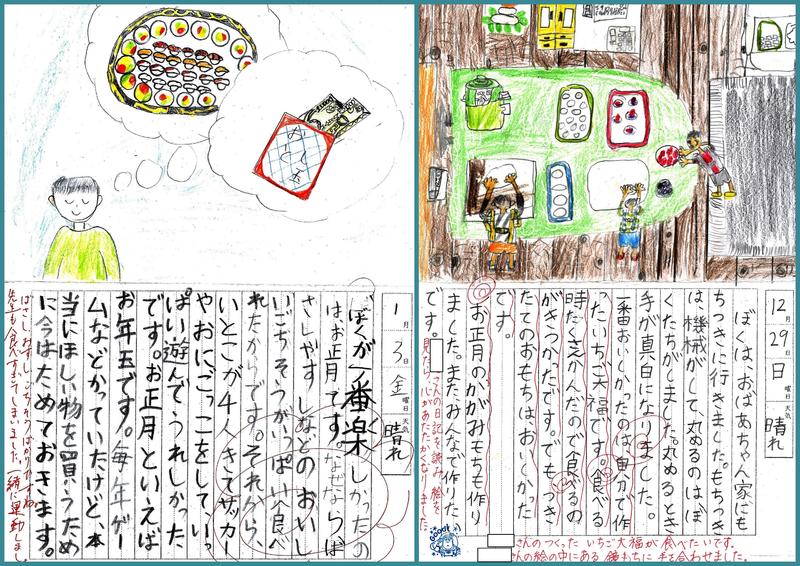 お年玉
1月3日金曜日 天気 晴れ
ぼくが一番楽しかったの
はお正月です。なぜならば
さしやすしなどのおいし
いごちそうがいっぱい食べ
れたからです。それから、
いとこが4人きてサッカー
やおにごっこををして、いっ
ぱい遊んでうれしかった
です。お正月といえば
お年玉です。毎年ゲー
ムなどかっていたけど、本
当にほしい物を買うため
に今はためておきます。
先生も食べすぎてしまいました。一緒に運動しまし
12月29日 日曜日 天気 晴れ
ぼくは、おばあちゃん家にも
ちつきに行きました。もちつき
は、機械がして、丸めるのはぼ
くたちがしました。丸めるとき
手が真白になりました。
一番おいしかったのは、自分で作
ったいちご大福です。食べる
時たくさんかんだので食べるの
がきつかったです。でも、つき
たてのおもちは、おいしかった
です。
お正月のかがみもちも作り
ました。また、みんなで作りた
です。
さんの日記を読み、絵を
見たら、心があたたかくなりました。
さんのつくった いちご大福が食べたいです。
さんの絵の中にある鏡もちに手を合わせました。
Good!